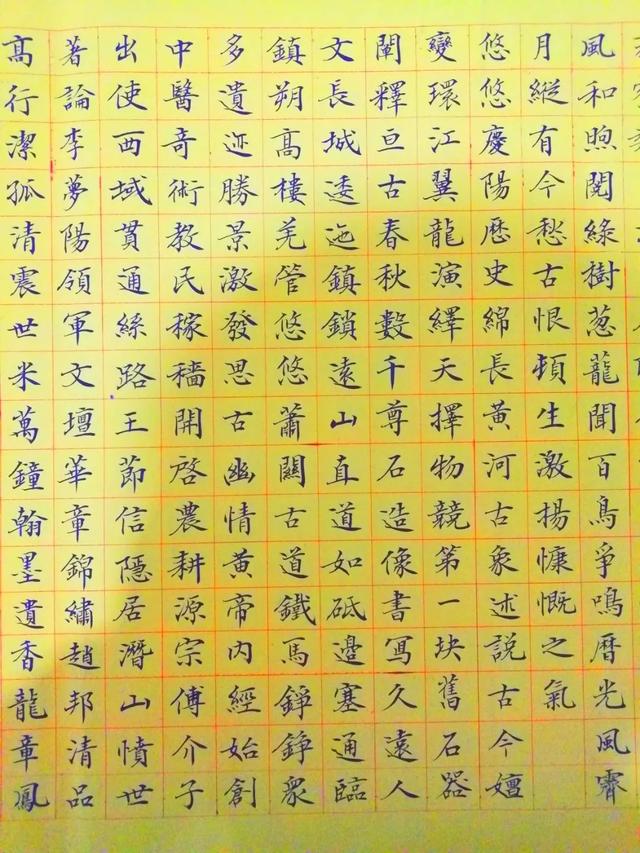 風和煦閱綠樹葱蘢聞百鳥爭鳴曆光風霽
月縱有今愁古恨頓生激揚慷慨之氣
悠悠慶陽歷史綿長黃河古象述說古今嬗
變環江翼龍演繹天擇物競第一块舊石器
闡釋亘古春秋數千尊石造像書寫久遠人
文長城逶迤鎮鎖遠山直道如砥邊塞通臨
鎮朔高樓羌管悠悠蕭關古道鐵馬錚錚衆
多遺迹勝景激發思古幽情黃帝內經始創
中醫奇術教民稼穡開啓農耕源宗傅介子
出使西域貫通絲路王莭信隱居潛山憤世
著論李夢陽領軍文壇華章錦繡趙邦清品
高行潔孤清震世米萬鐘翰墨遺香龍章鳳